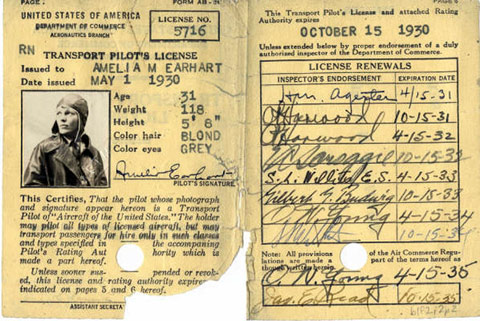 PAGE
FORM AB-
UNITED STATES OF AMERICA
DEPARTMENT OF COMMERCE
AERONAUTICS BRANCH
LICENSE NO.
5716
RN
TRANSPORT PILOT'S LICENSE
Issued to AMELIA M EARHART
Date issued MAY 1 1930
Age 31
Weight 118
Height 5' 8"
Color hair BLOND
Color eyes GREY
Amelia Earhart
PILOT'S SIGNATURE
This Certifies, That the pilot whose photograph
and signature appear hereon is a Transport
Pilot of "Aircraft of the United States." The holder
may pilot all types of licensed aircraft, but may
transport passengers for hire only in such classes
and types specified in the accompanying
Pilot's Rating Aut hority which is
made a part hereof.
Unless sooner sus pended or revok-
ed, this license and rating authority expires
indicated on pages 5 and 6 hereof.
ASSISTANT SECRETA
PAGE
This Transport Pilot's License and attached Rating
Authority expires
OCTOBER 15 1930
Unless extended below by proper endorsement of a duly
authorized inspector of the Department of Commerce.
LICENSE RENEWALS
INSPECTOR'S ENDORSEMENT EXPIRATION DATE
4/15-31
Harwood 10-15-31
Harwood 4-15-32
10-15-32
S.L. Willits E.S. 4-15-33
Gilbert G. Budwig 10-15-33
Young 4-15-34
10-15-34
Note: All provisions of the Air Commerce Regu-
lations are made a part of the terms hereof as
though written herein.
Young 4-15-35
10-15-35